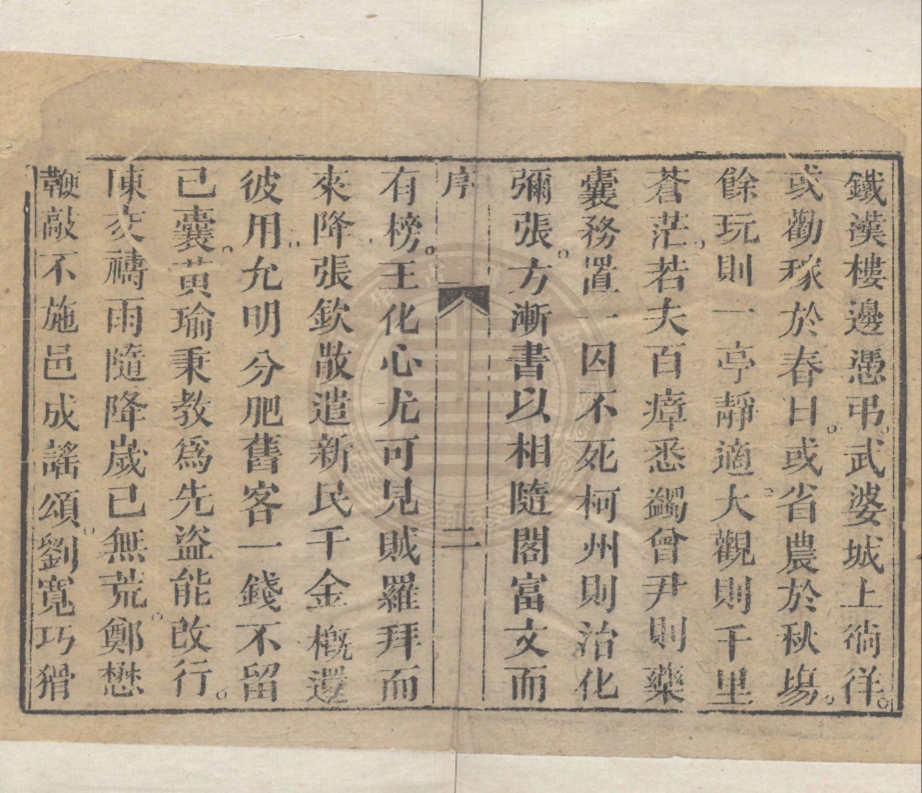 鐵漢樓邊憑弔。武婆城上徜徉。
或勸稼於春日。或省農於秋塲。
餘玩則一亭靜適。大觀則千里
蒼茫。若夫百瘴悉蠲曾尹則藥
囊務置一囚不死柯州則治化
彌張。方漸書以相隨閣富文而
序 二
有榜。王化心尤可見賊羅拜而
來降張欽散遣新民千金概還
彼用。允明分肥舊客一錢不留
已囊。黃瑜秉教爲先盜能改行。
陳爻禱雨隨降歲已無荒。鄭懋
鞭敲不施邑成謠頌。劉寬巧猾